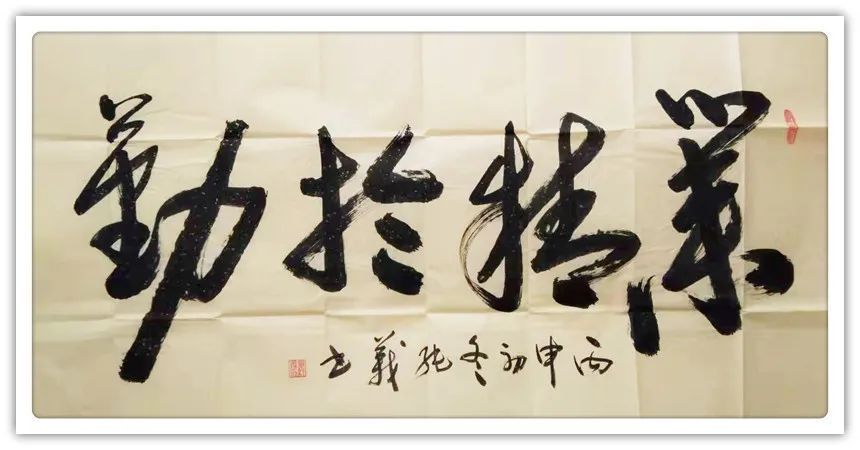 業精於勤
丙申初冬義书